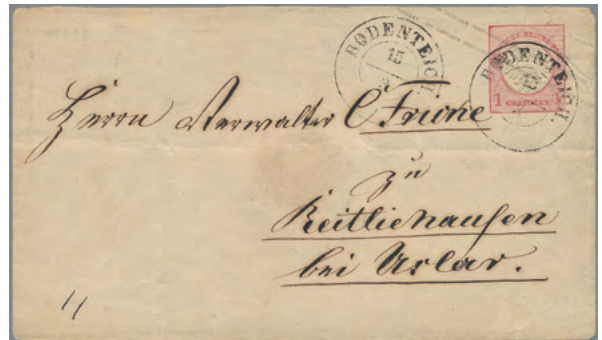 BODENTEICH.
15
BODENTEICH.
1 GROSCHEN 1
Herrn Verwalter C Frione
zu
Reitliehausen
bei Uslar.